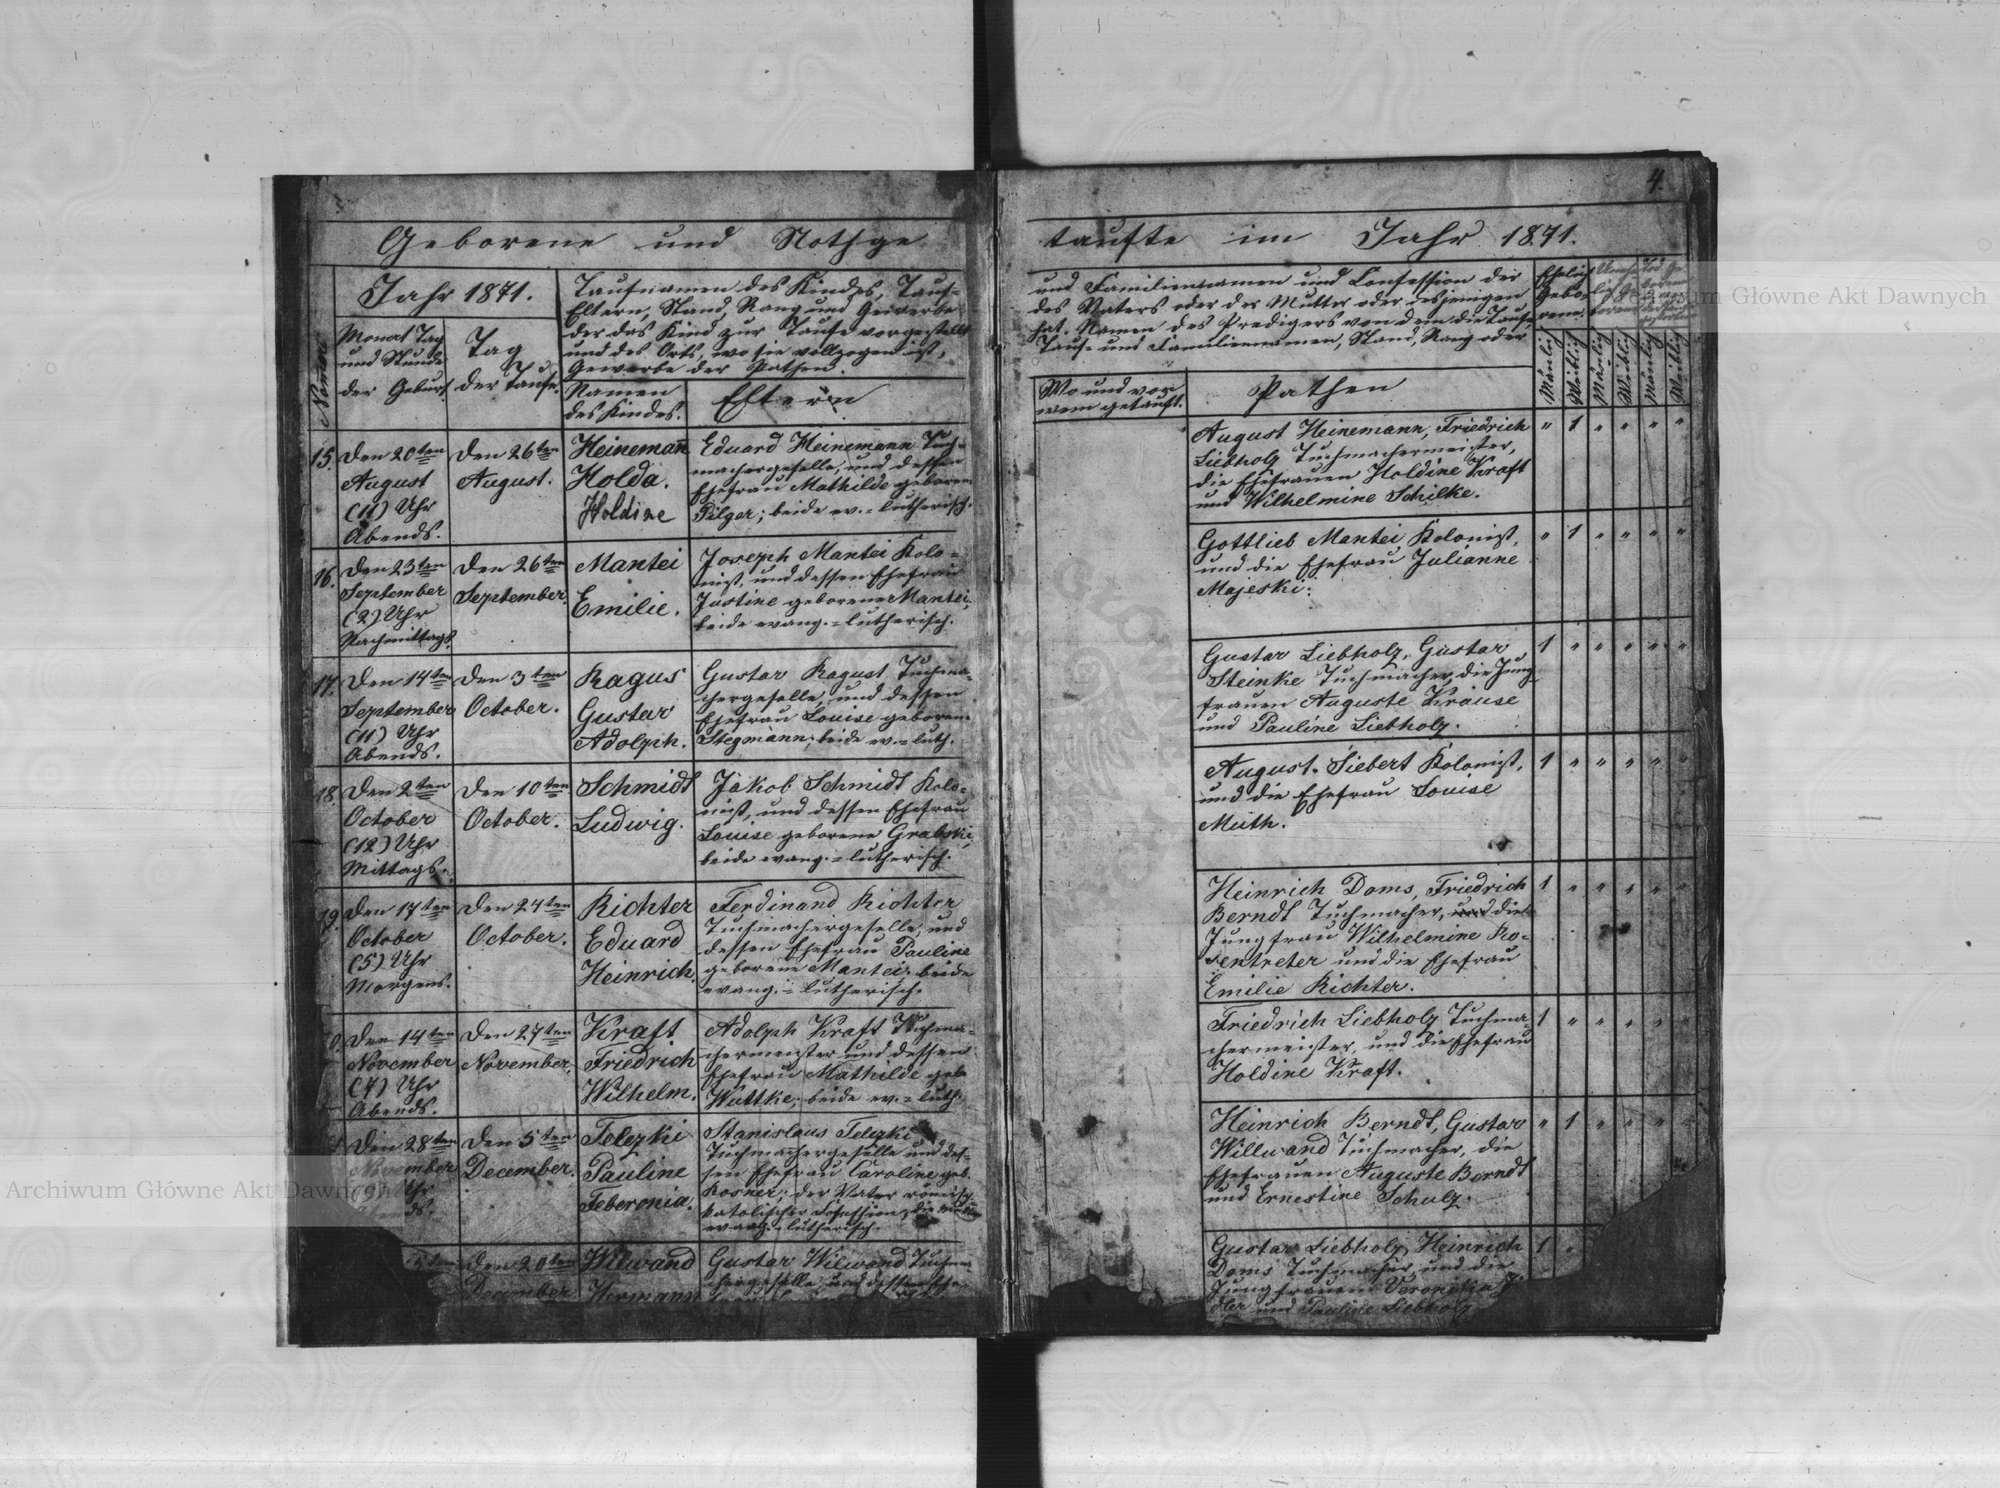 4.
Geborene und Nothge
taufte im Jahr 1871.
Jahr 1871.
Monat Tag
und Stunde
der Geburt.
Tag
der Taufe.
Taufnamen des Kindes, Tauf-
Eltern, Stand, Rang und Gewerbe
der das Kind zur Taufe vorgestellt
und des Orts, wo sie vollzogen ist,
Gewerbe der Pathen.
Namen
des Kindes.
Eltern
und Familiennamen und Confession der
des Vaters oder der Mutter oder desjenigen
hat. Namen des Predigers von dem die Taufe
Tauf- und Familiennamen, Stand, Rang oder
Wo und von
wem getauft.
Pathen
Ehelich
Gebo-
rene
Mänlich
Weiblich
Mänlich
Weiblich
Mänlich
Weiblich
15.
Den 20ten
August
(11) Uhr
Abends.
Den 26ten
August.
Heinemann
Holda.
Holdine
Eduard Heinemann Tuch-
machergeselle, und dessen
Ehefrau Mathilde geborene
Pilger; beide ev.=lutherisch.
August Heinemann, Friedrich
Liebholz Tuchmachermeister,
die Ehefrauen Holdine Kraft
und Wilhelmine Schilke.
" 1 " " " "
16.
Den 23ten
September
(2) Uhr
Nachmittags.
Den 26ten
September.
Mantei
Emilie.
Joseph Mantei Kolo=
nist, und dessen Ehefrau
Justine geborene Mantei,
beide evang.=lutherisch.
Gottlieb Mantei Kolonist,
und die Ehefrau Julianne
Majeski.
" 1 " " " "
17.
Den 14ten
September
(11) Uhr
Abends.
Den 3ten
October.
Ragus
Gustav
Adolph.
Gustav Ragust Tuchma-
chergeselle, und dessen
Ehefrau Louise geborene
Stegmann; beide ev.=luth.
Gustav Liebholz, Gustav
Steinke Tuchmacher, die Jung-
frauen Auguste Krause
und Pauline Liebholz.
1 " " " " "
18.
Den 2ten
October
(12) Uhr
Mittags.
Den 10ten
October.
Schmidt
Ludwig.
Jakob Schmidt Kolo-
nist, und dessen Ehefrau
Louise geborene Grabski,
beide evang.=lutherisch.
August Siebert Kolonist,
und die Ehefrau Louise
Muth.
1 " " " " "
19.
Den 17ten
October
(5) Uhr
Morgens.
Den 24ten
October.
Richter
Eduard
Heinrich.
Ferdinand Richter
Tuchmachergeselle, und
dessen Ehefrau Pauline
geborene Mantei; beide
evang.=lutherisch.
Heinrich Doms, Friedrich
Berndt Tuchmacher, und die
Jungfrau Wilhelmine Ro-
sentreter und die Ehefrau
Emilie Richter.
1 " " " " "
Den 14ten
November
(4) Uhr
Abends.
Den 27ten
November.
Kraft
Friedrich
Wilhelm.
Adolph Kraft Tuchma-
chermeister und dessen
Ehefrau Mathilde geb.
Wuttke; beide ev.=luth.
Friedrich Liebholz Tuchma-
chermeister, und die Ehefrau
Holdine Kraft.
1 " " " " "
Den 28ten
November
Uhr
Den 5ten
December.
Telezki
Pauline
Feberonia.
Stanislaus Telezki
Tuchmachergeselle und des-
sen Ehefrau Caroline geb.
Rosner; der Vater römisch
katolischer Confession, die Mutter
evang.=lutherisch.
Heinrich Berndt, Gustav
Willwand Tuchmacher, die
Ehefrauen Auguste Berndt
und Ernestine Schulz.
" 1 " " " "
Den 20ten
December
Wilwand
Hermann
Gustav Wilwand Tuchma-
chergeselle, und dessen Ehe-
Gustav Liebholz, Heinrich
Doms Tuchmacher, und die
Jungfrauen Veronika
dler und Pauline Liebholz
1 "
Archiwum Główne Akt Dawnych
Archiwum Główne Akt Dawnych